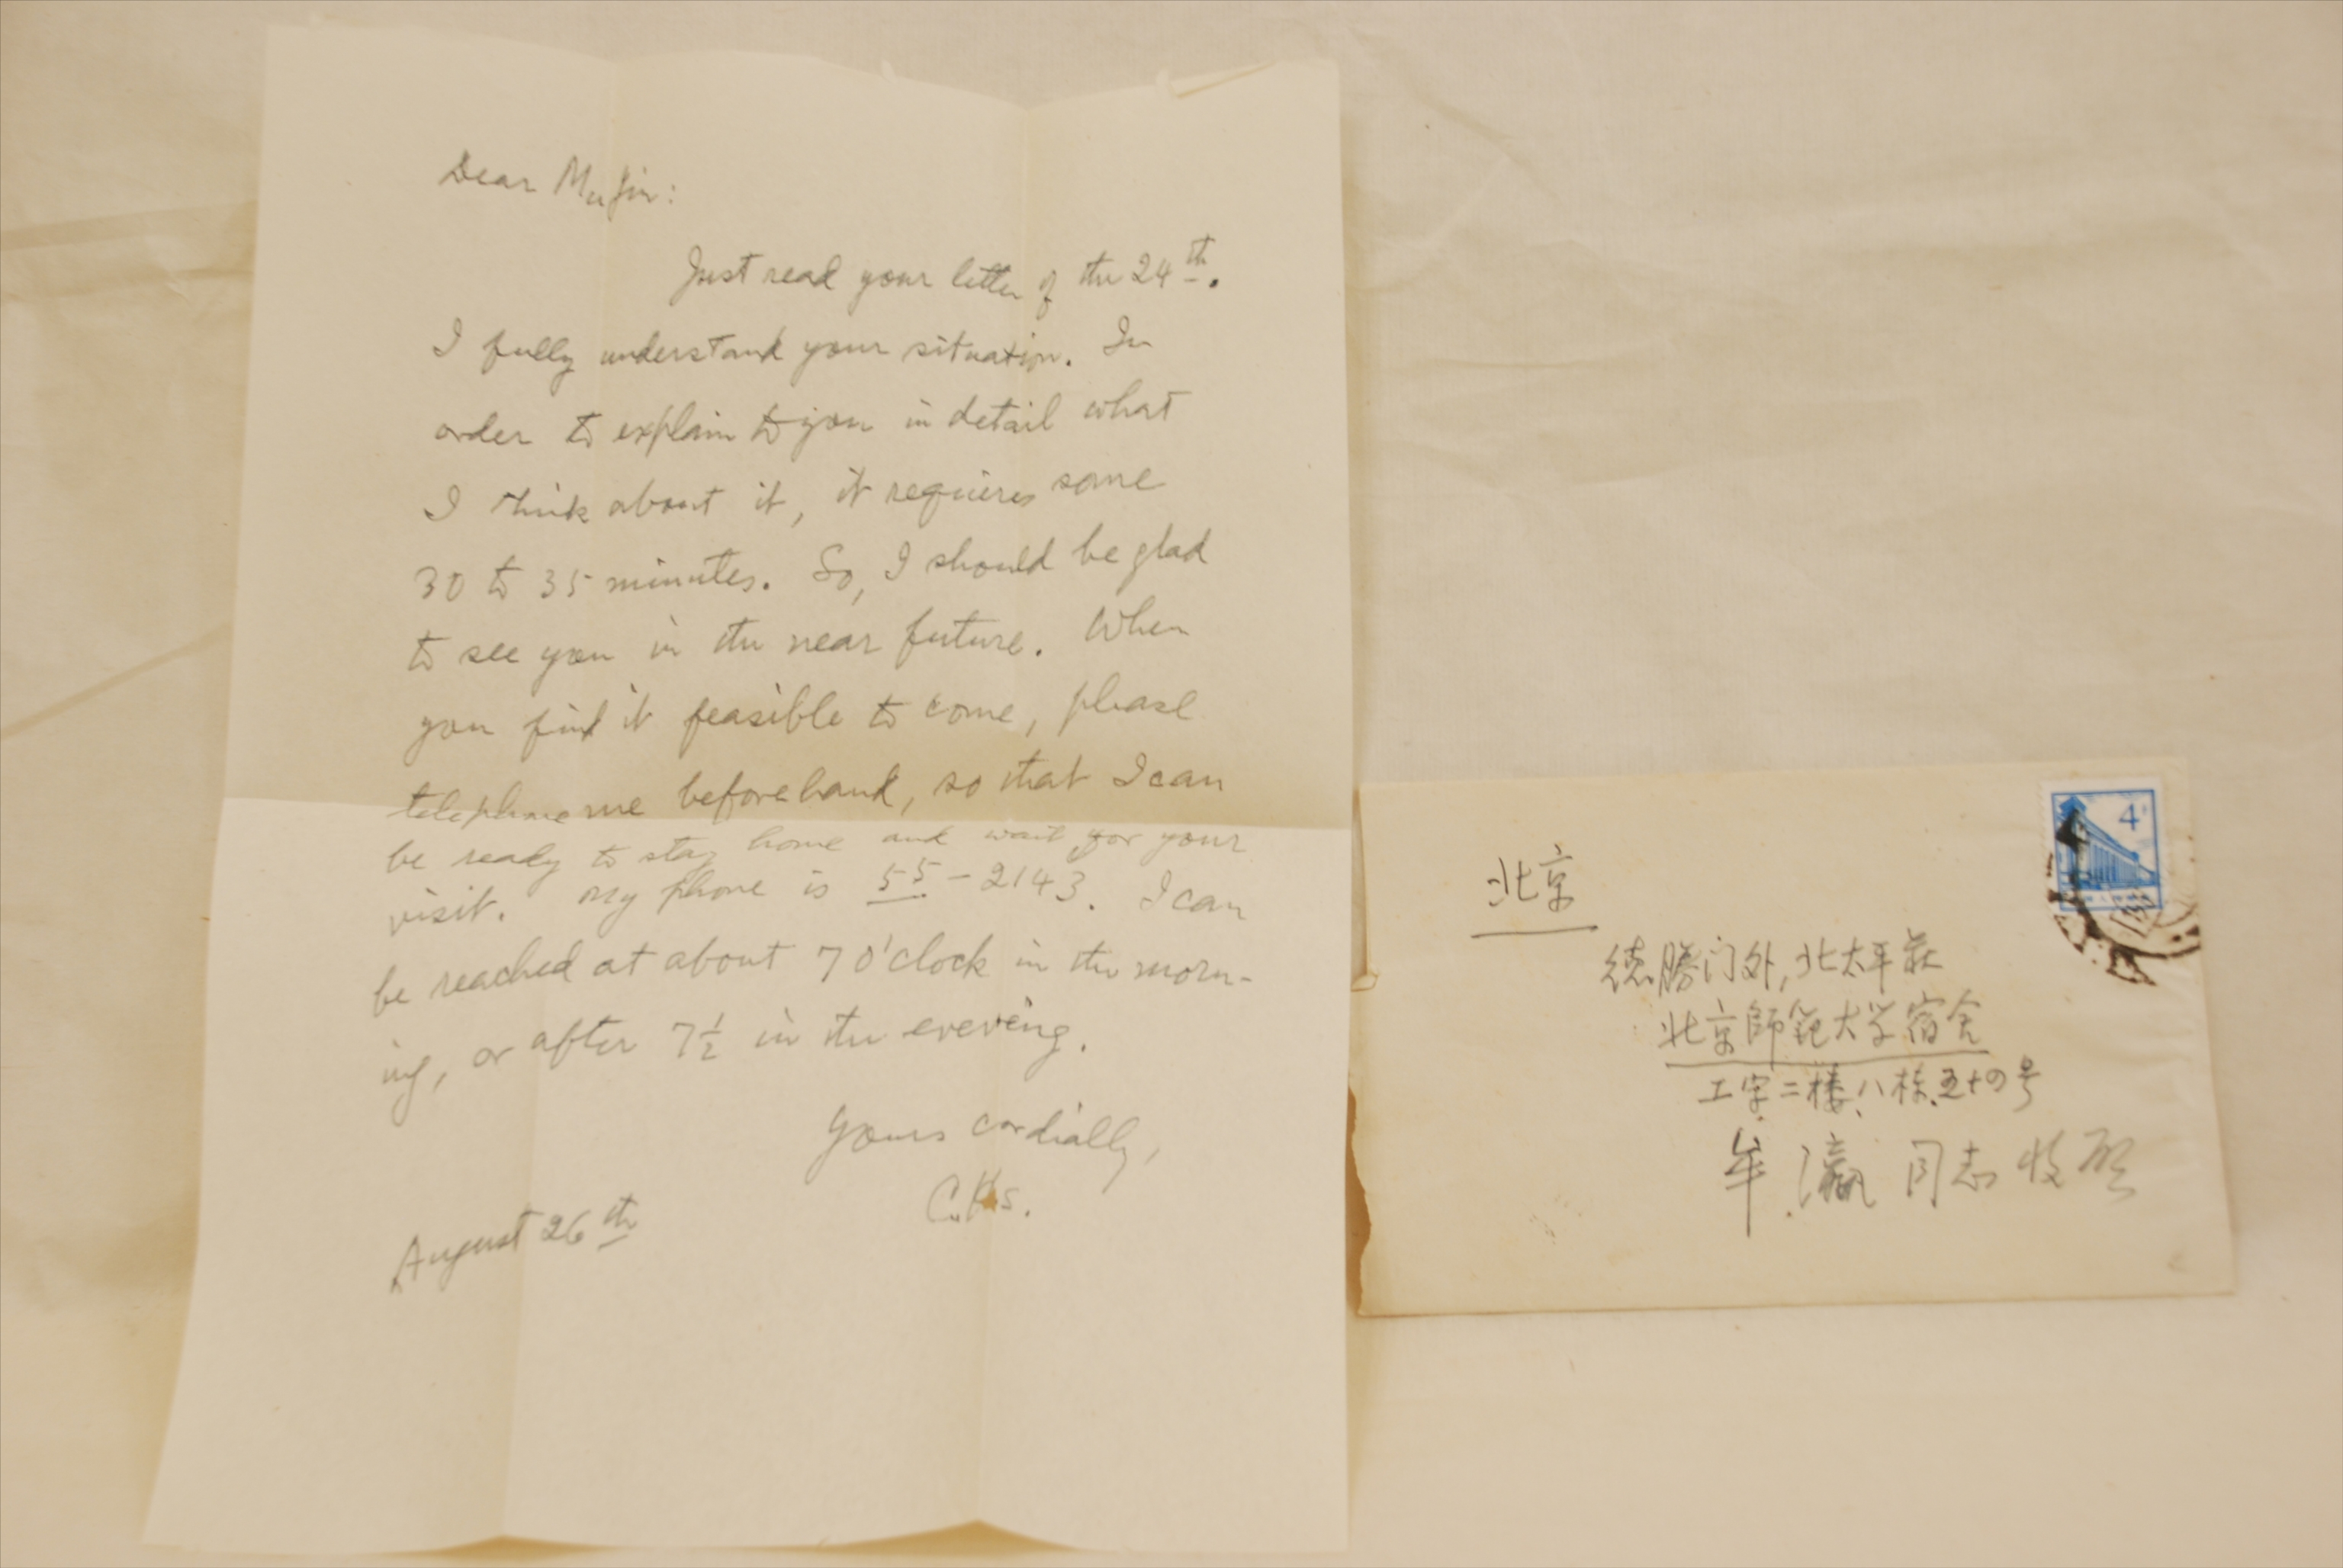 Dear Mu Jin:
Just read your letter of the 24th.
I fully understand your situation. In
order to explain to you in detail what
I think about it, it requires some
30 to 35 minutes. So, I should be glad
to see you in the near future. When
you find it feasible to come, please
telephone me beforehand, so that I can
be ready to stay home and wait for your
visit. My phone is 55-2143. I can
be reached at about 7 o'clock in the morn-
ing, or after 7½ in the evening.
Yours cordially,
C.K.S.
August 26th
4
北京
德勝门外,北太平莊
北京師範大学宿舍
工字二楼、八栋、五十四号
牟瀛同志收启